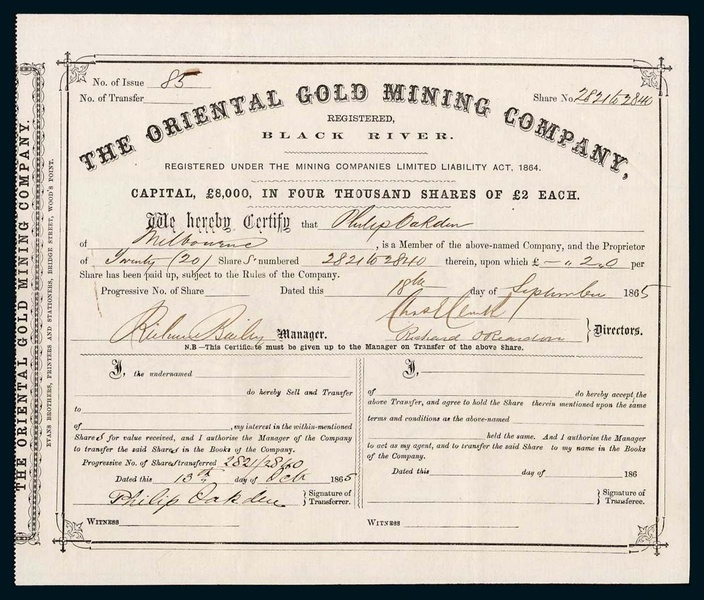 No. of Issue 85
No. of Transfer
Share No. 2821 to 2840
THE ORIENTAL GOLD MINING COMPANY,
REGISTERED,
BLACK RIVER.
REGISTERED UNDER THE MINING COMPANIES LIMITED LIABILITY ACT, 1864.
CAPITAL, £8,000, IN FOUR THOUSAND SHARES OF £2 EACH.
We hereby Certify that Philip Oakden
of Melbourne, is a Member of the above-named Company, and the Proprietor
of Twenty (20) Share s numbered 2821 to 2840 therein, upon which £ – " 2 . 0 per
Share has been paid up, subject to the Rules of the Company.
Progressive No. of Share Dated this 18th day of September 1865
Manager.
Richard O'Reardon
Directors.
N.B—This Certificate must be given up to the Manager on Transfer of the above Share.
I, the undernamed
do hereby Sell and Transfer
to
of , my interest in the within-mentioned
Share s for value received, and I authorise the Manager of the Company
to transfer the said Share s in the Books of the Company.
Progressive No. of Share s transferred 2821/2840
Dated this 13th day of Oct 1865
Philip Oakden
Signature of
Transferrer.
WITNESS
I,
of do hereby accept the
above Transfer, and agree to hold the Share therein mentioned upon the same
terms and conditions as the above-named
held the same. And I authorise the Manager
to act as my agent, and to transfer the said Share to my name in the Books
of the Company.
Dated this day of 186
Signature of
Transferee.
WITNESS
THE ORIENTAL GOLD MINING COMPANY.
EVANS BROTHERS, PRINTERS AND STATIONERS, BRIDGE STREET, WOOD'S POINT.